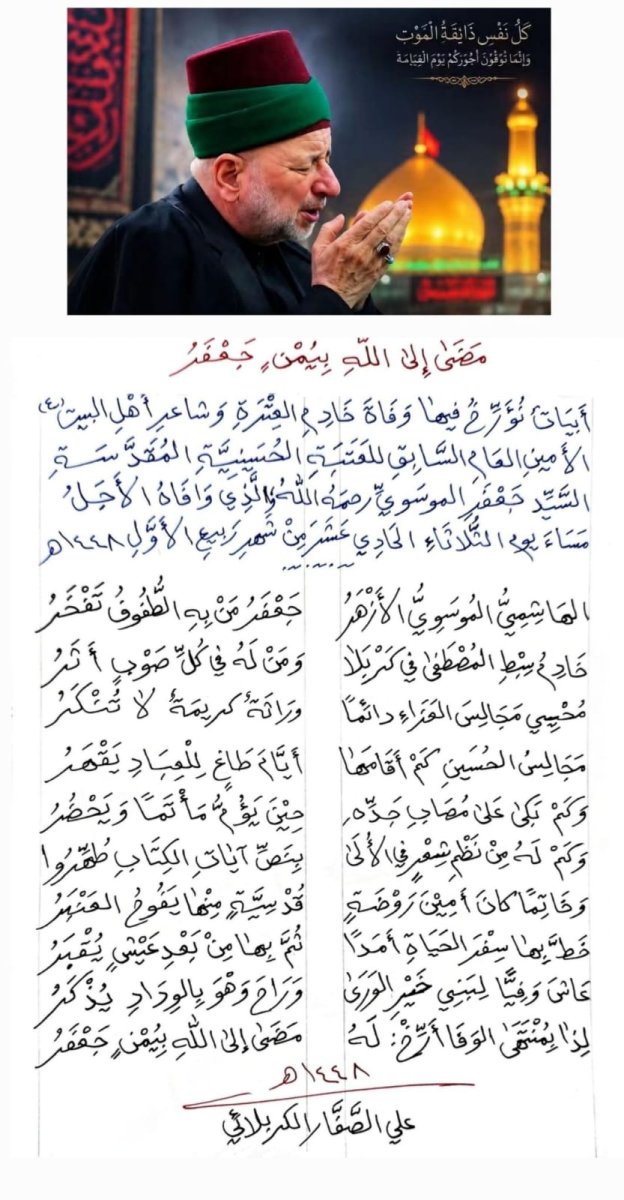 كُلُّ نَفْسٍ ذَائِقَةُ الْمَوْتِ
وَإِنَّمَا تُوَفَّوْنَ أُجُورَكُمْ يَوْمَ الْقِيَامَةِ
مَضَىٰ إِلىٰ اللّٰهِ بِيُمْنٍ جَعْفَرُ
أبيَاتٌ نُؤَرِّخُ فيهٰا وَفَاةَ خَادِمِ العِتْرَةِ وَشاعرِ أهْلِ البيتِ (ع)
الأمينِ العَامِ السَّابِقِ للعَتَبَةِ الحُسَينِيَّةِ المُقَدَّسَةِ
السَّيِّد جَعْفَرٍ الموسَوِيِّ رحمَهُ اللّٰهُ والَّذِي وَافَاهُ الأجَلُ
مَسَاءَ يومِ الثُّلَاثَاءِ الحَادِي عَشَرَ مِنْ شَهرِ رَبيعِ الأوَّلِ ١٤٤٨هـ
الهَاشِمِيُّ المُوسَوِيُّ الأزْهَرُ جَعْفَرُ مَنْ بِهِ الطُّفُوفُ تَفْخَرُ
خَادِمُ سِبْطِ المُصْطَفىٰ في كَرْبَلا وَمَنْ لَهُ في كُلِّ صَوْبٍ أثَرُ
مُحْيِي مَجَالِسِ العَزَاءِ دائمًا وراثَةٌ كريمَةٌ لا تُنْكَرُ
مَجَالِسُ الحُسَينِ كَمْ أقَامَهٰا أيَّامَ طَاغٍ لِلْعِبَادِ يَقْهَرُ
وَكَمْ بَكىٰ عَلىٰ مُصَابِ جَدِّهِ حِيْنَ يَؤُمُّ مَأْتَمًا وَيَحْضُرُ
وَكَمْ لَهُ مِنْ نَظْمِ شِعْرٍ في الأُلَىٰ بِنَصِّ آيَاتِ الكِتَابِ طُهِّرُوا
وَخَاتِمًا كانَ أمِيْنَ رَوْضَةٍ قُدْسِيَّةٍ مِنْهٰا يَفُوحُ العَنْبَرُ
خَطَّ بِهٰا سِفْرَ الحَيَاةِ أمَدًا ثُمَّ بِهٰا مِنْ بَعْدِ عَيْشٍ يُقْبَرُ
عَاشَ وَفِيًّا لِبَنِي خَيْرِ الوَرَىٰ وَرَاحَ وَهْوَ بِالوِدَادِ يُذْكَرُ
لِذا بِمُنْتَهَىٰ الوَفَا أَرِّخْ: لَهُ مَضَىٰ إلىٰ اللّٰهِ بِيُمْنٍ جَعْفَرُ
١٤٤٨هـ
علي الصَّفَّار الكربلائي